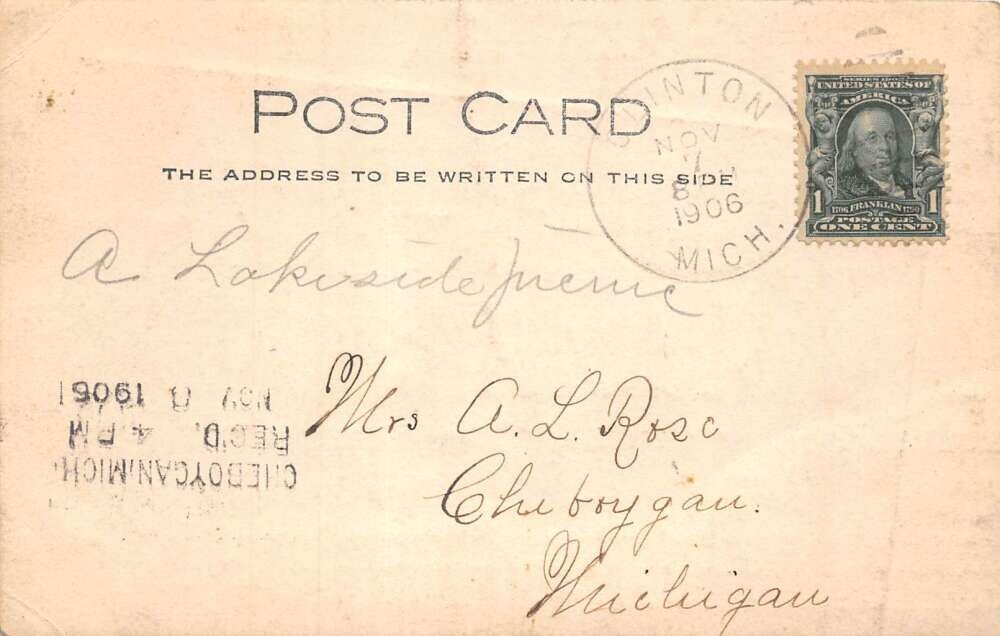 POST CARD
THE ADDRESS TO BE WRITTEN ON THIS SIDE
CLINTON
NOV
7
8
1906
MICH.
SERIES 1902
UNITED STATES OF
AMERICA
1 1706 FRANKLIN 1790 1
POSTAGE
ONE CENT
A Lakeside
Mrs A. L. Rose
Cheboygan.
Michigan
CHEBOYGAN, MICH.
REC'D. 4 PM
NOV 8 1906